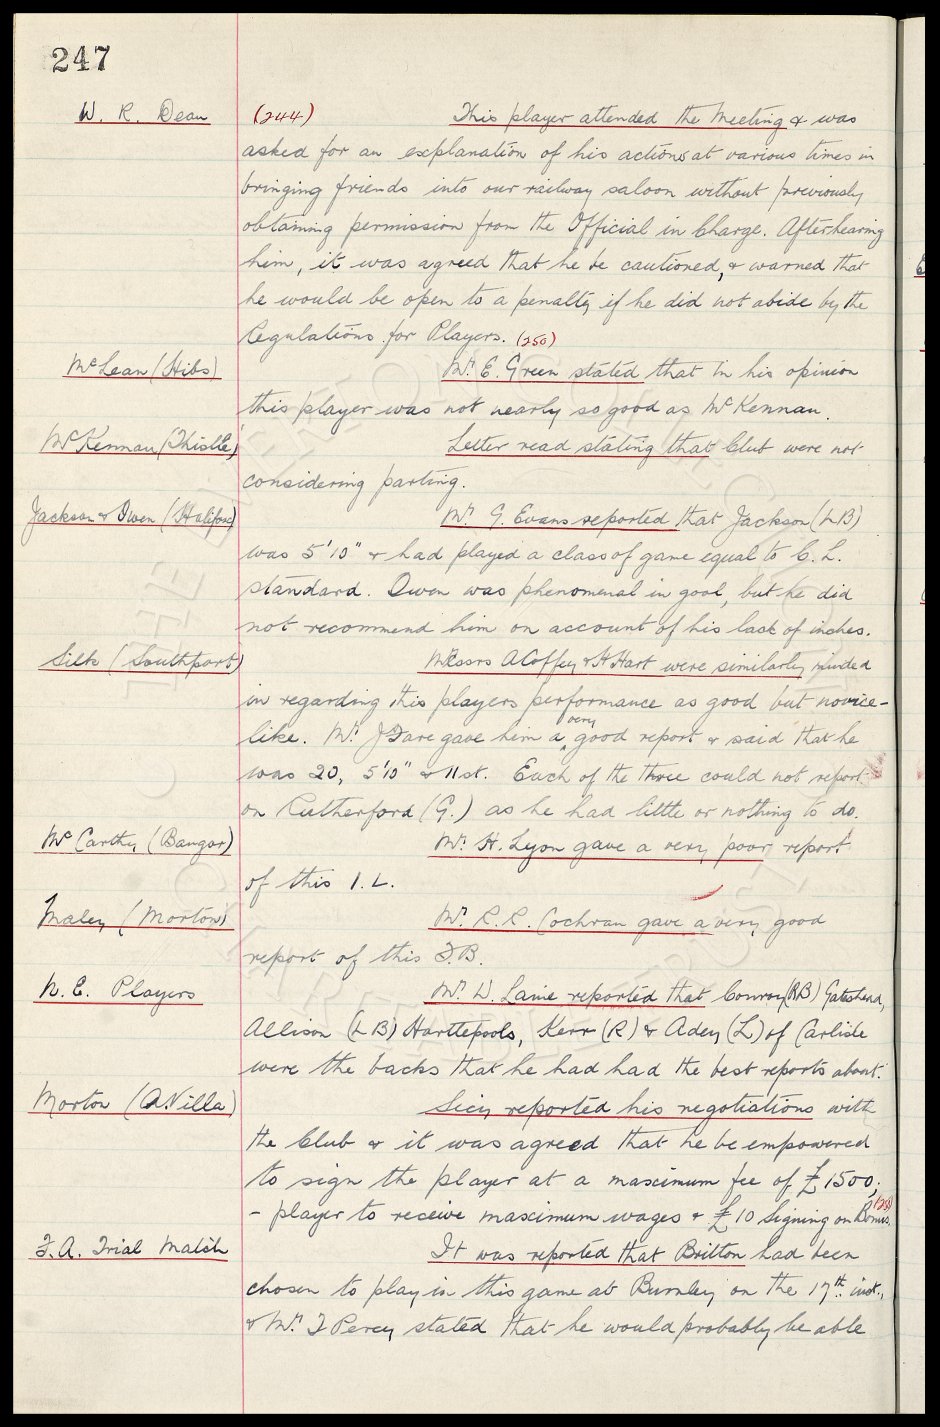 247
W. R. Dean (244) This player attended the Meeting & was
asked for an explanation of his actions at various times in
bringing friends into our railway saloon without previously
obtaining permission from the Official in Charge. After hearing
him, it was agreed that he be cautioned, & warned that
he would be open to a penalty if he did not abide by the
Regulations for Players. (250)
McLean (Hibs) Mr. E. Green stated that in his opinion
this player was not nearly so good as McKennan.
McKennan (Thistle) Letter read stating that Club were not
considering parting.
Jackson & Owen (Halifax) Mr. G. Evans reported that Jackson (LB)
was 5'10" & had played a class of game equal to C. L.
standard. Owen was phenomenal in goal, but he did
not recommend him on account of his lack of inches.
Silk (Southport) Messrs A Coffey & H Hart were similarly minded
in regarding this players performance as good but novice-
like. Mr. J Dare gave him a very good report & said that he
was 20, 5'10" & 11st. Each of the three could not report
on Rutherford (G.) as he had little or nothing to do.
McCarthy (Bangor) Mr. H. Lyon gave a very poor report
of this I. L.
Maley (Morton) Mr. R. R. Cochran gave a very good
report of this F.B.
N. E. Players Mr. W. Laine reported that Conroy (RB) Gateshead,
Allison (LB) Hartlepools, Kerr (R) & Adey (L) of Carlisle
were the backs that he had had the best reports about.
Morton (A. Villa) Secy reported his negotiations with
the Club & it was agreed that he be empowered
to sign the player at a maximum fee of £1500;
- player to receive maximum wages & £10 Signing on Bonus.
F. A. Trial Match It was reported that Britton had been
chosen to play in this game at Burnley on the 17th inst.,
& Mr. F Percy stated that he would probably be able